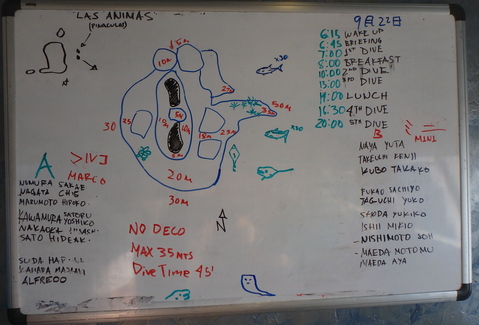 "LAS ANIMAS"
(PINACULOS)
9月22日
6:15 WAKE UP
6:45 BRIEFING
7:00 1ST DIVE
8:00 BREAKFAST
10:00 2ND DIVE
13:00 3RD DIVE
14:00 LUNCH
16:30 4TH DIVE
20:00 5TH DIVE
x30
x30
15m
10m
5m
25
30
50m
15m
25m
20m
30m
N
A
MARCO
NOMURA SAKAE
NAGATA
MARUMOTO HIROKO
KAWAMURA SATORU
YOSHIKO
NAKAOKA
SATO HIDEAK.
SUDA
ALFREDO
NO DECO
MAX 35 MTS
Dive Time 45'
B
MINI
NAYA YUTA
TAKEUCHI KENJI
KUBO TAKAKO
FUKAO SACHIYO
TAGUCHI YUKO
YUKIKO
ISHII MIKIO
NISHIMOTO
MAEDA MOTOMU
MAEDA AYA